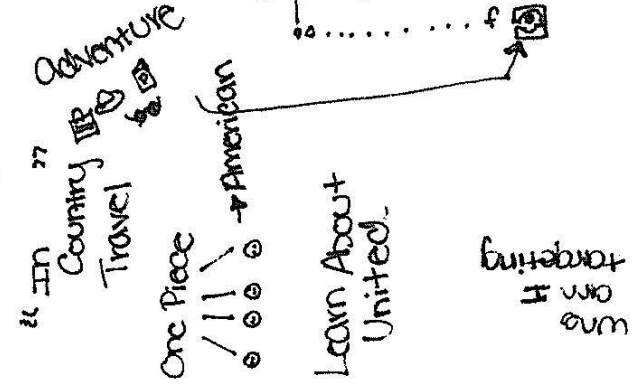 adventure
"In
Country"
Travel
One Piece
→ American
Learn About
United.
am I
targeting
f